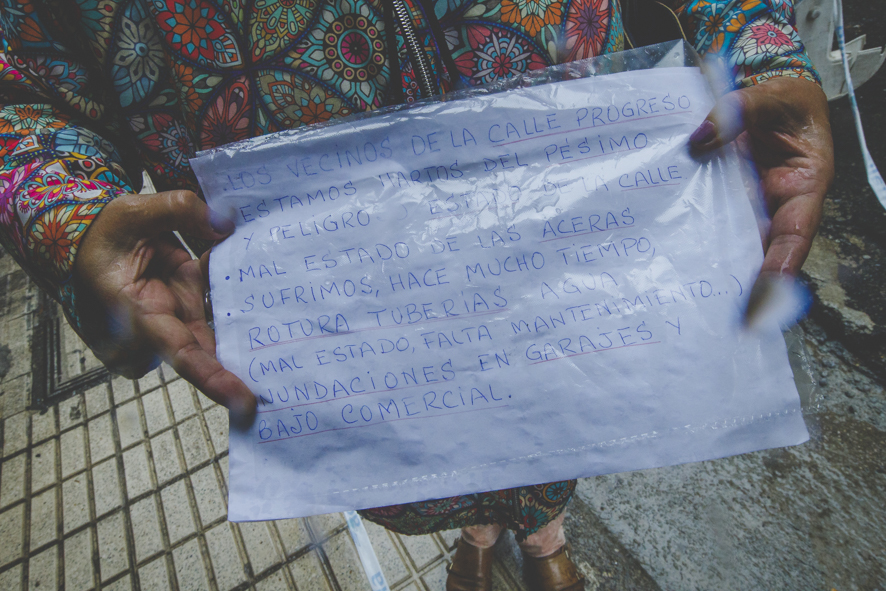 .LOS VECINOS DE LA CALLE PROGRESO
ESTAMOS HARTOS DEL PÉSIMO
Y PELIGRO ESTADO DE LA CALLE
• MAL ESTADO DE LAS ACERAS
• SUFRIMOS, HACE MUCHO TIEMPO,
ROTURA TUBERIAS AGUA
(MAL ESTADO, FALTA MANTENIMIENTO...)
NUNDACIONES EN GARAJES Y
BAJO COMERCIAL.